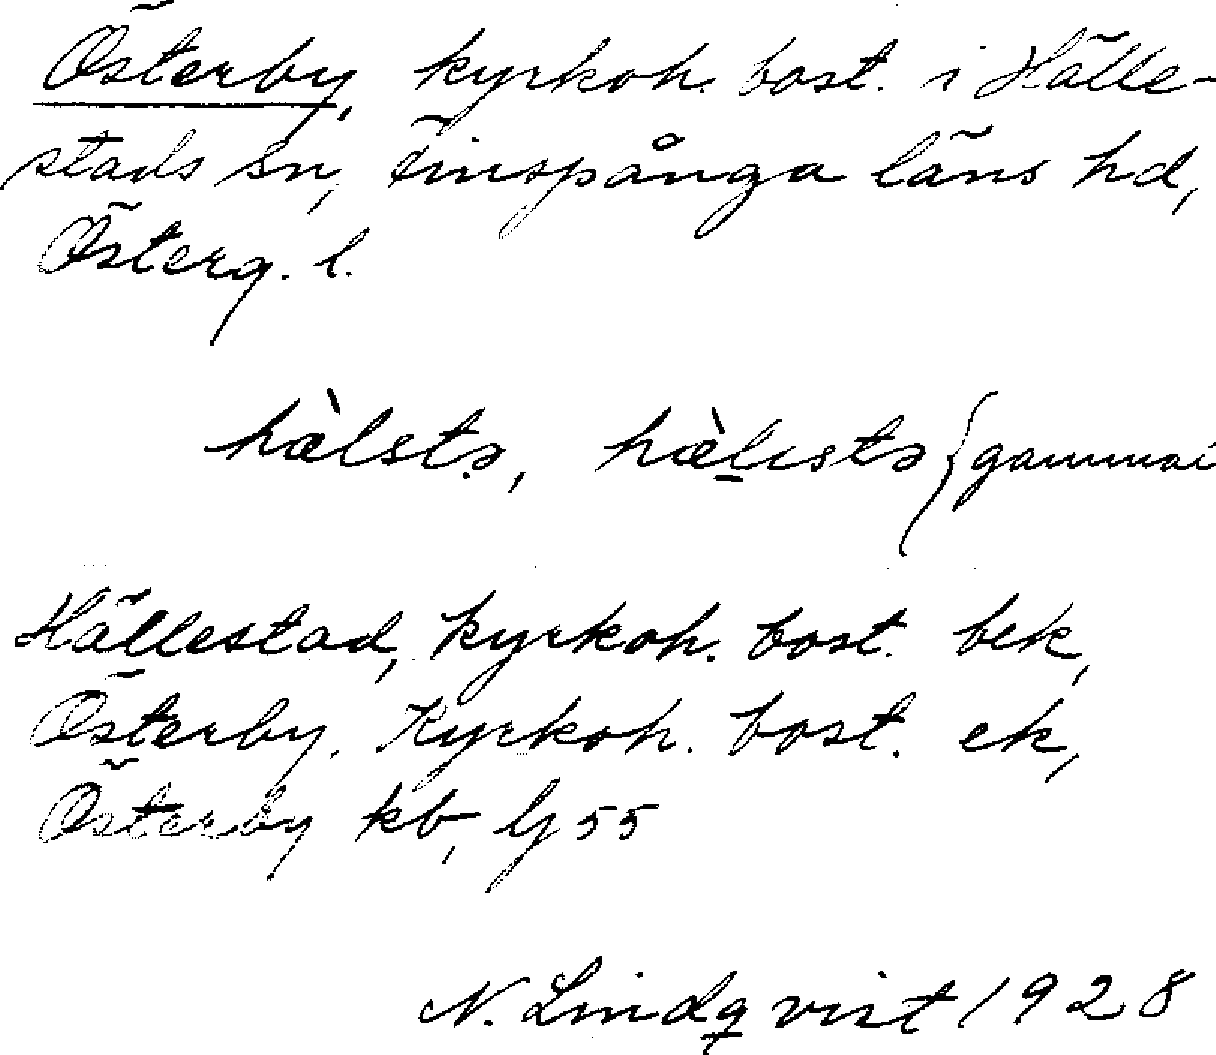 Österby, kyrkoh. bost. i Hälle-
stads sn, Finspånga läns hd,
Österg. l.
hæ̀lstə, hæ̀lıstə {gammal
Hällestad, kyrkoh. bost. bek,
Österby. Kyrkoh. bost. ek,
Österby kb, Gj 55
N. Lindqvist 1928